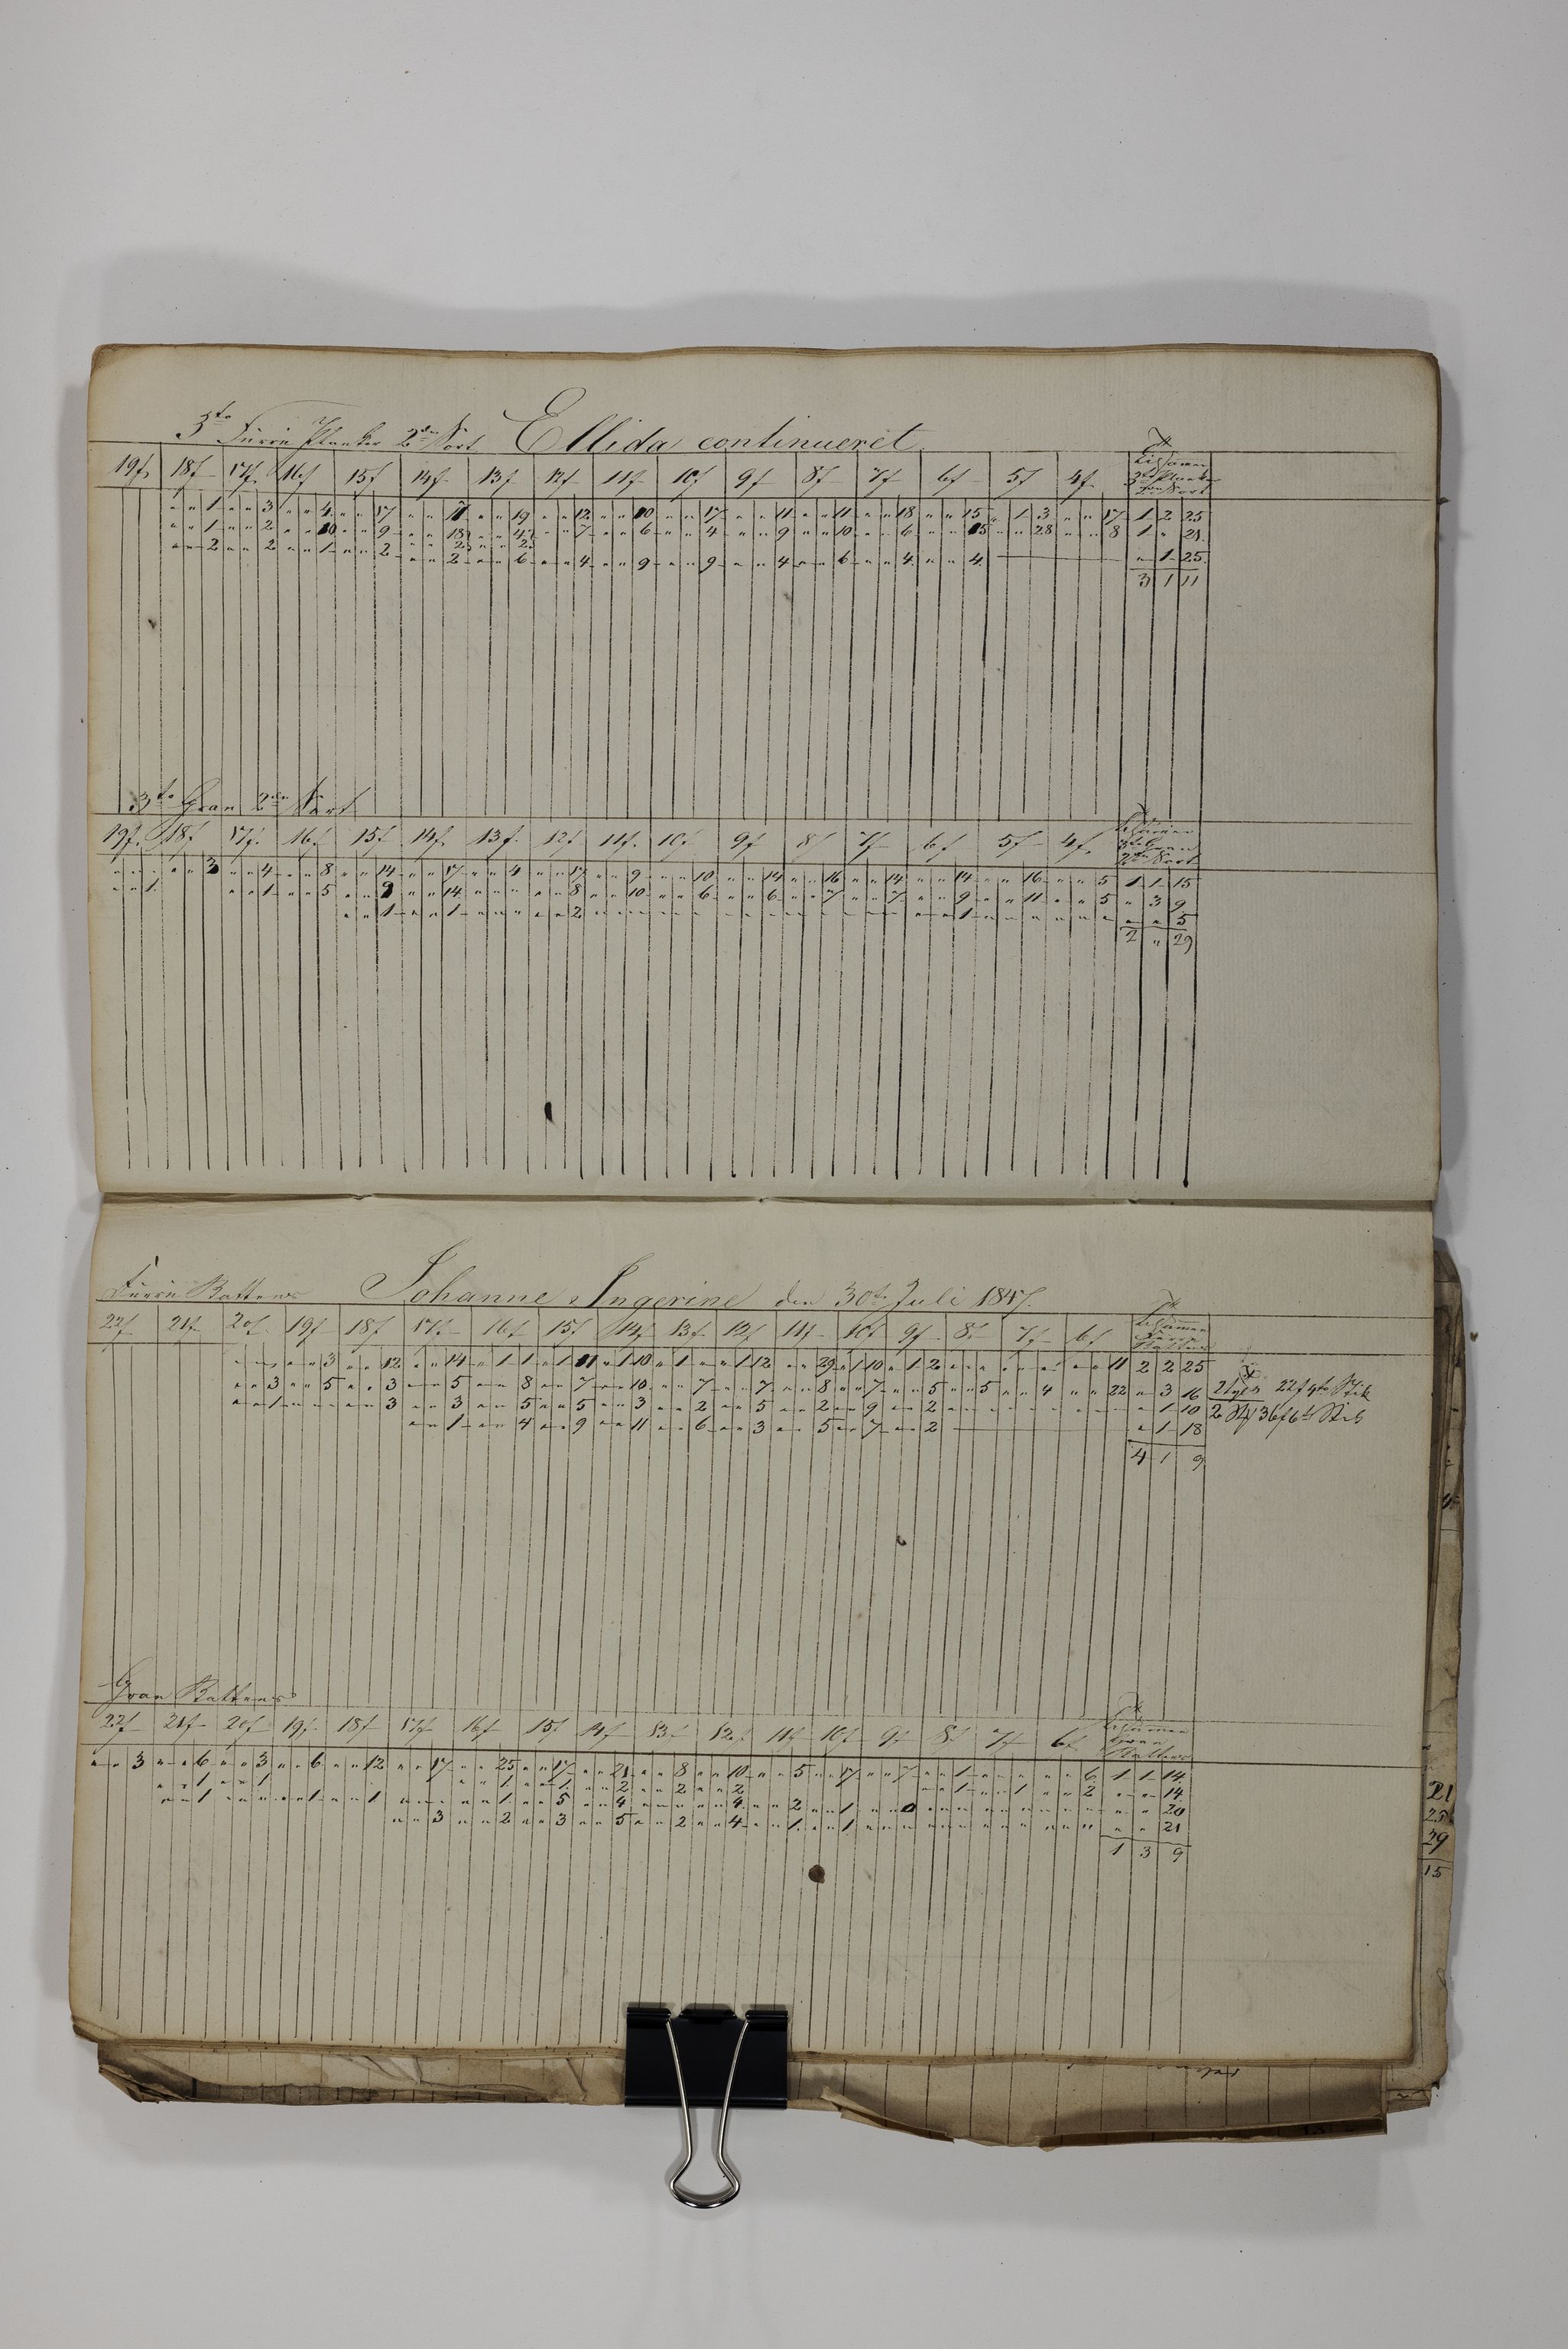 3te Furru Planker 2den Sort Ellida continueret
19f 18f 17f 16f 15f 14f 13f 12f 11f 10f 9f 8f 7f 6f 5f 4f Tilsammen 3te Planker 2den Sort
" " 1 " " 3 " " 4 " " 17 " " 11 " " 19 " " 12 " " 10 " " 17 " " 11 " " 11 " " 18 " " 15 " 1 3 " " 17 1 2 25
" " 1 " " 2 " " 10 " " 9 " " 18 " " 4 " " 7 " " 6 " " 4 " " 9 " " 10 " " 6 " " 15 " " 28 " " 8 1 " 21
" " 2 " " 2 " " 1 " " 2 " " 2 " " 2
" " 2 " " 6 " " 4 " " 9 " " 9 " " 4 " " 6 " " 4 " " 4 " 1 25
3 1 11
3te Gran 2den Sort
19f 18f 17f 16f 15f 14f 13f 12f 11f 10f 9f 8f 7f 6f 5f 4f Tilsammen 3te Gran 2den Sort
" " " " " 3 " " 4 " " 8 " " 14 " " 17 " " 4 " " 17 " " 9 " " 10 " " 14 " " 16 " " 14 " " 14 " " 16 " " 5 1 1 15
" " 1 " " 1 " " 5 " " 9 " " 14 " " " " " 8 " " 10 " " 6 " " 6 " " 7 " " 7 " " 9 " " 11 " " 5 " 3 9
" " 1 " " 1 " " " " " 2 " " " " " " " " " " " " " " " " " 1 " " " " " " " " 5
2 " 29
Furru Battens Johanne Ingerine den 30te Juli 1847.
22f 21f 20f 19f 18f 17f 16f 15f 14f 13f 12f 11f 10f 9f 8f 7f 6f Tilsammen Furru Battens
" " " " " 3 " " 12 " " 14 " 1 1 " 1 11 " 1 10 " 1 " " 1 12 " " 29 " 1 10 " 1 2 " " " " " " " " 11 2 2 25
" " 3 " " 5 " " 3 " " 5 " " 8 " " 7 " " 10 " " 7 " " 7 " " 8 " " 7 " " 5 " " 5 " " 4 " " 22 " 3 16 22f
" " 1 " " " " " 3 " " 3 " " 5 " " 5 " " 3 " " 2 " " 5 " " 2 " " 9 " " 2 " " " " " " " " " " 1 10 2
" " 1 " " 4 " " 9 " " 11 " " 6 " " 3 " " 5 " " 7 " " 2 " 1 18
4 1 9
Gran Battens
22f 21f 20f 19f 18f 17f 16f 15f 14f 13f 12f 11f 10f 9f 8f 7f 6f Tilsammen Gran Battens
" " 3 " " 6 " " 3 " " 6 " " 12 " " 17 " " 25 " " 17 " " 21 " " 8 " " 10 " " 5 " " 17 " " 7 " " 1 " " " " " 6 1 1 14
" " 1 " " 1 " " 1 " " 1 " " 2 " " 2 " " 2 " " 1 " " 1 " " 2 " " 14
" " 1 " " " " " 1 " " 1 " " " " " 1 " " 5 " " 4 " " " " " 4 " " 2 " " 1 " " 0 " " " " " " " " " " " 20
" " 3 " " 2 " " 3 " " 5 " " 2 " " 4 " " 1 " " 1 " " " " " " " " " " " " " " 21
1 3 9
21
25
29
15